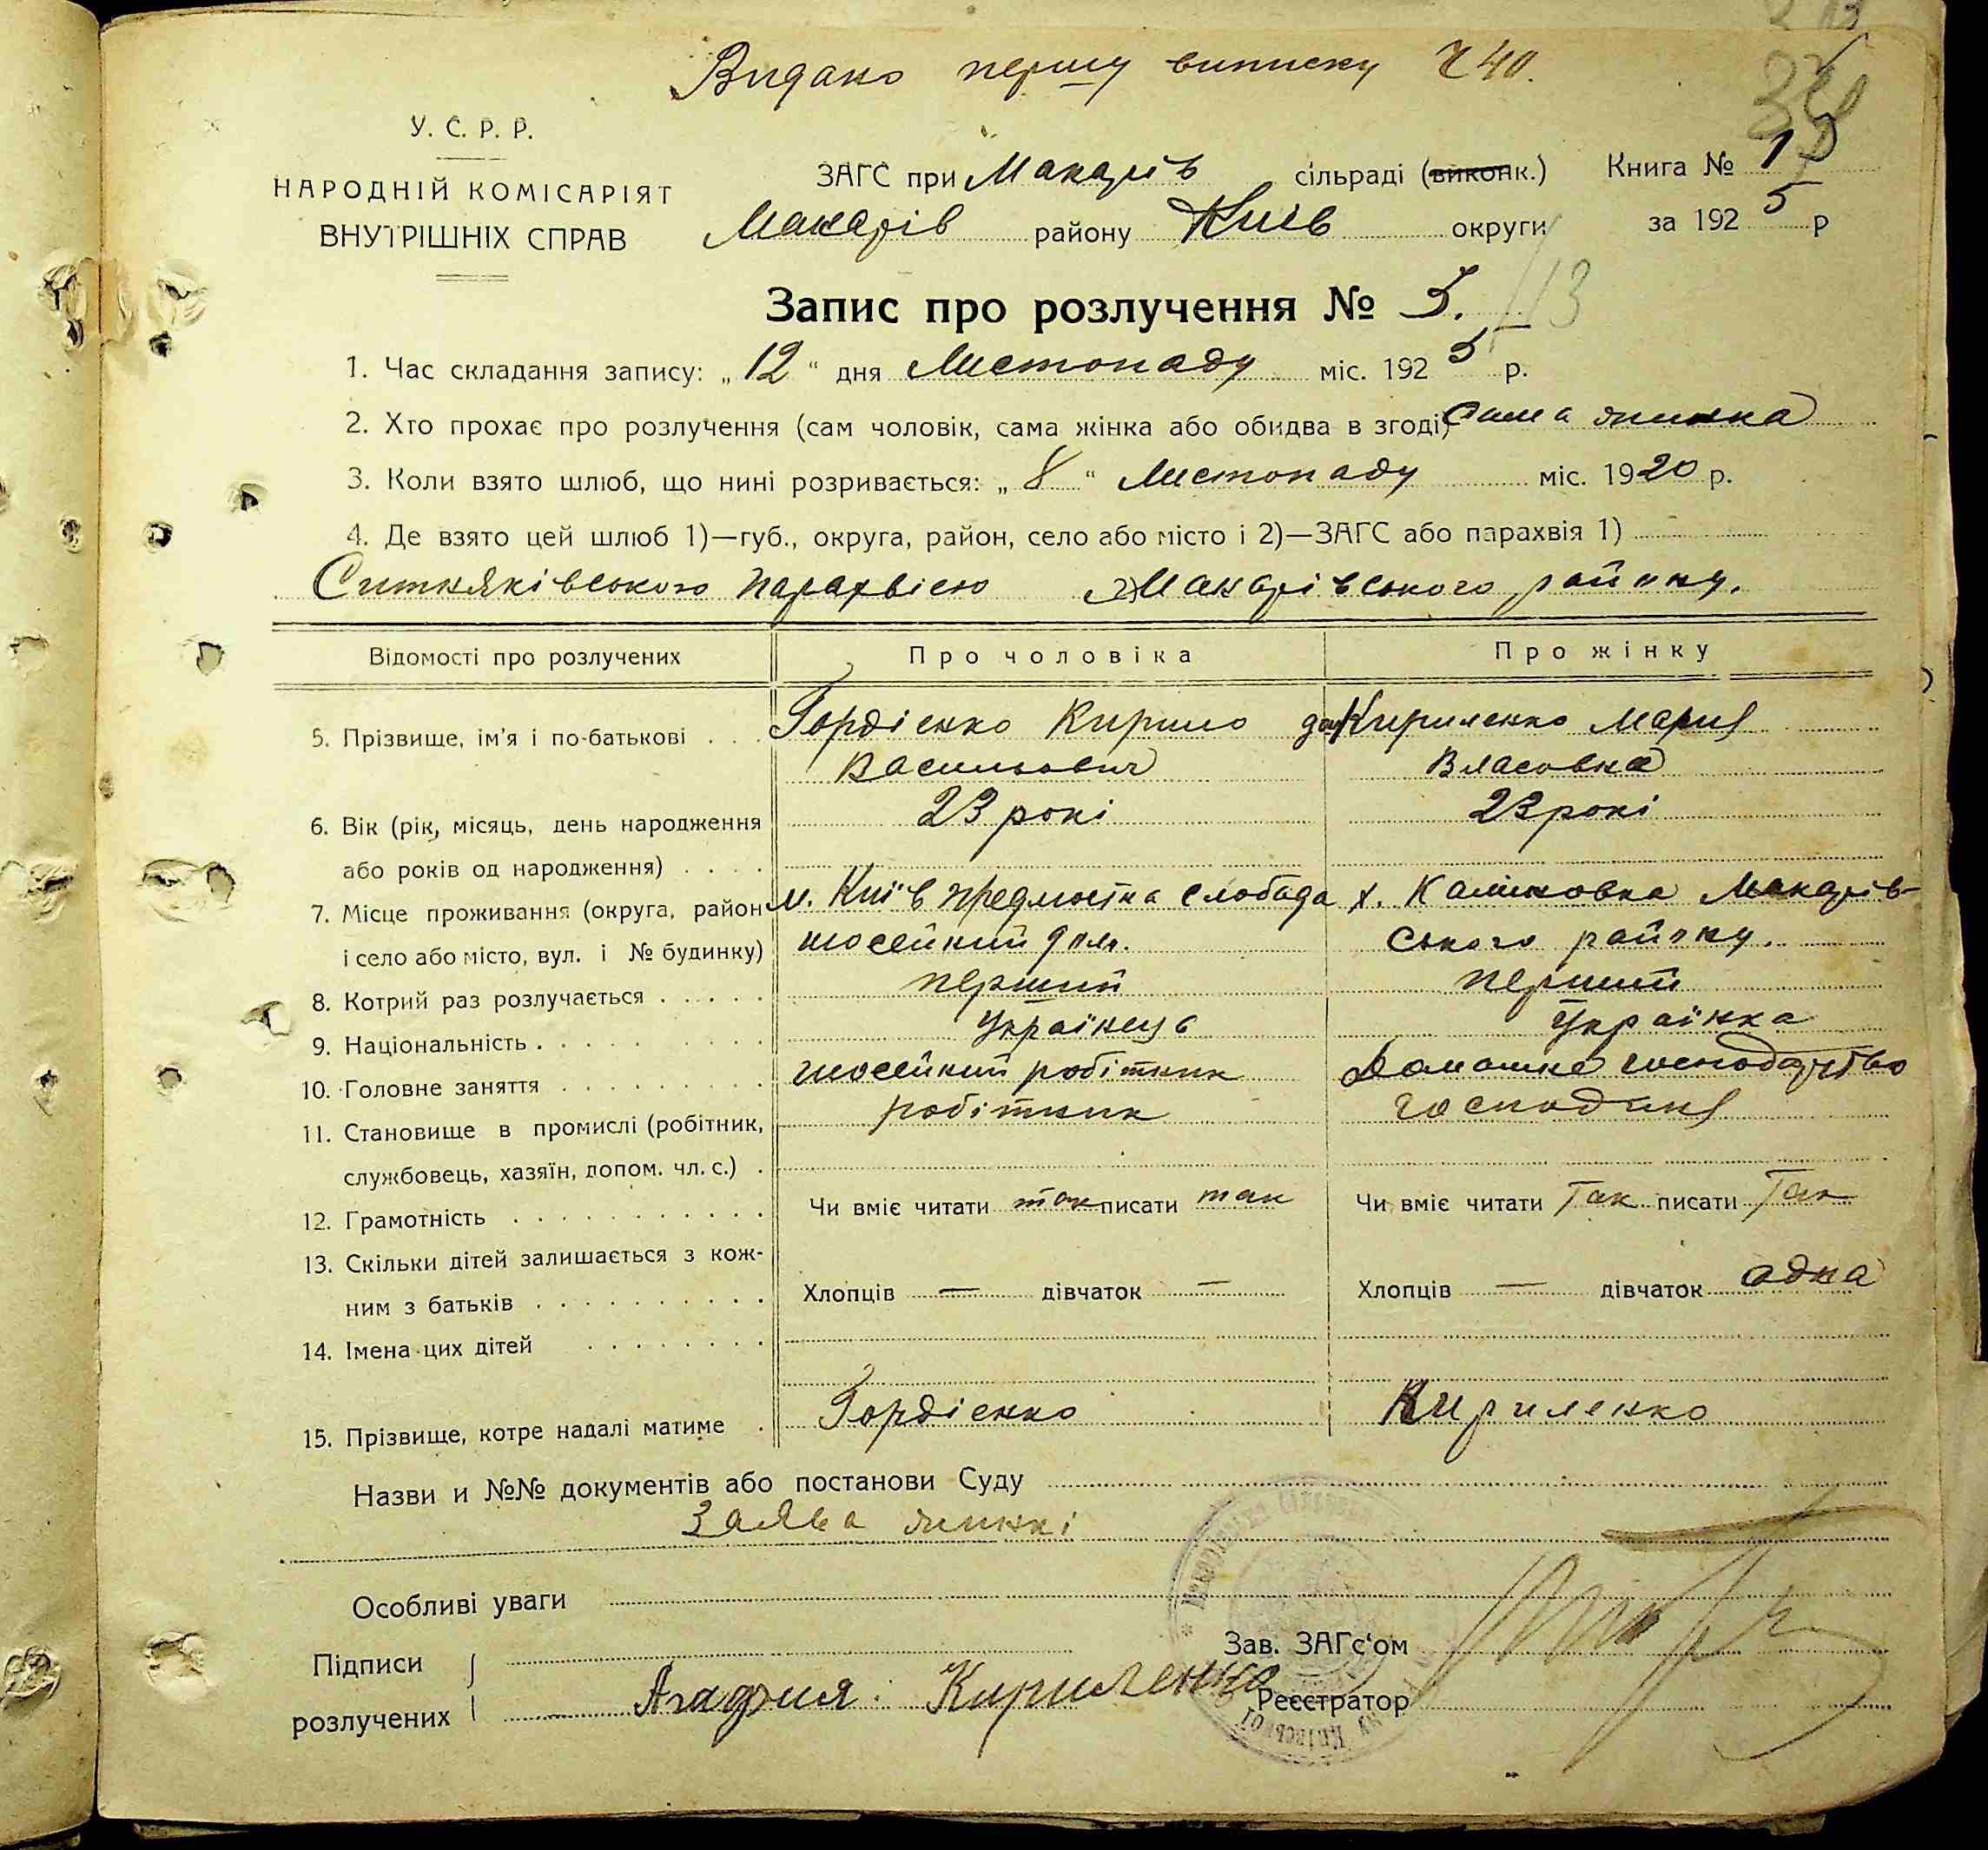 Видано першу виписку Ч 40.
У. С. Р. Р.
НАРОДНІЙ КОМІСАРІЯТ
ВНУТРІШНІХ СПРАВ
ЗАГС при Макарів сільраді (виконк.) Книга № 1
Макарів району Київ округи за 1925 р
Запис про розлучення № 5. 13
1. Час складання запису: „12" дня Листопаду міс. 1925 р.
2. Хто прохає про розлучення (сам чоловік, сама жінка або обидва в згоді) Сама жинка
3. Коли взято шлюб, що нині розривається: „8" Листопаду міс. 1920 р.
4. Де взято цей шлюб 1)—губ., округа, район, село або місто і 2)—ЗАГС або парахвія 1)
Ситняківського парахвією Макарівського району.
Відомості про розлучених Про чоловіка Про жінку
5. Прізвище, ім'я і по-батькові Гордієнко Кирило Кириленко Мария
Васильович Власовна
6. Вік (рік, місяць, день народження 23 рокі 23 рокі
або років од народження)
7. Місце проживання (округа, район м. Київ предмостна слобода х. Калиновка Макарів-
і село або місто, вул. і № будинку) шосейний дом. ського району.
8. Котрий раз розлучається перший перший
9. Національність Українець Українка
10. Головне заняття шосейний робітник Домашнє господарство
11. Становище в промислі (робітник, робітник господиня
службовець, хазяїн, допом. чл. с.)
12. Грамотність Чи вміє читати так писати так Чи вміє читати Так писати Так
13. Скільки дітей залишається з кож-
ним з батьків Хлопців — дівчаток — Хлопців — дівчаток одна
14. Імена цих дітей
15. Прізвище, котре надалі матиме Гордієнко Кириленко
Назви и №№ документів або постанови Суду
Заява жинкі
Особливі уваги
Підписи Зав. ЗАГс'ом
розлучених Агафия Кириленко Реєстратор